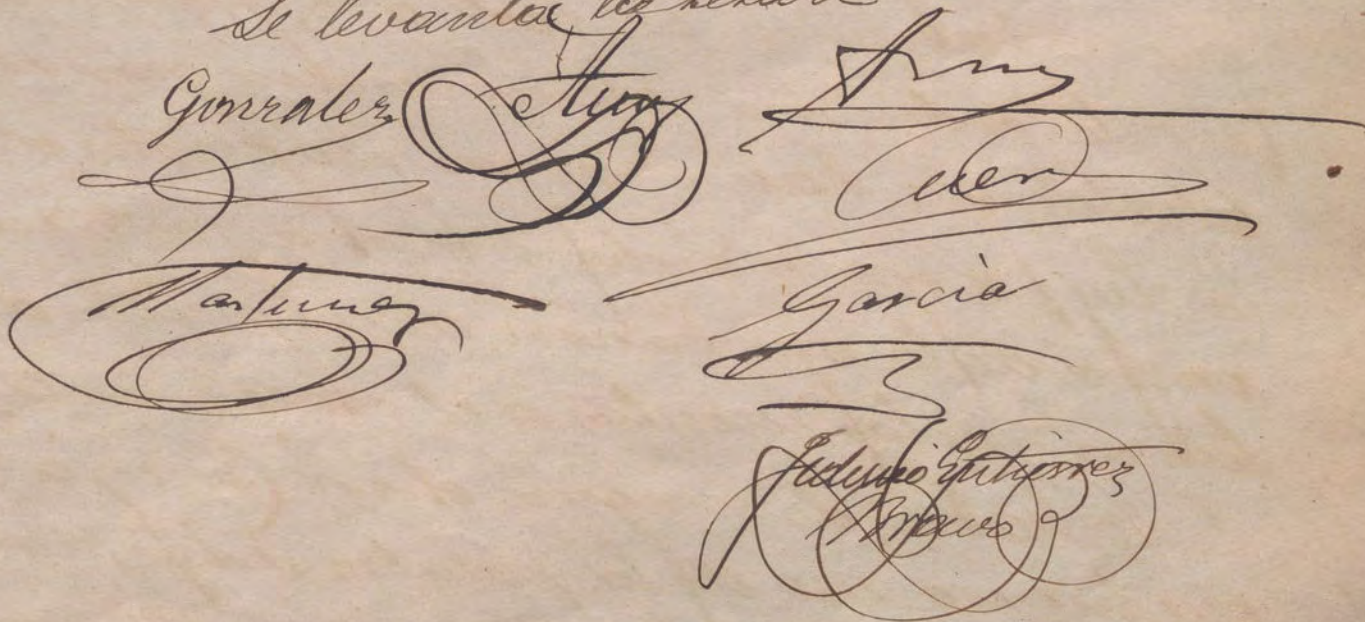 Se levanta la sesión
Gonzalez
Martinez
Garcia
Federico Gutierrez
Bravo